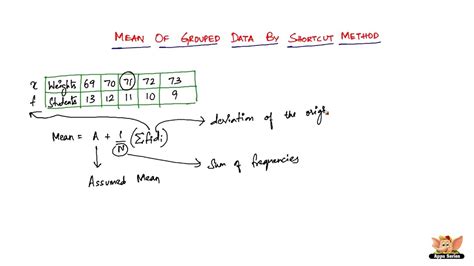 MEAN OF GROUPED DATA BY SHORTCUT METHOD
x Weights 69 70 71 72 73
f Students 13 12 11 10 9
deviation of the orig
Mean = A + 1/N (Σfidi)
Sum of frequencies
Assumed Mean
Appu Series